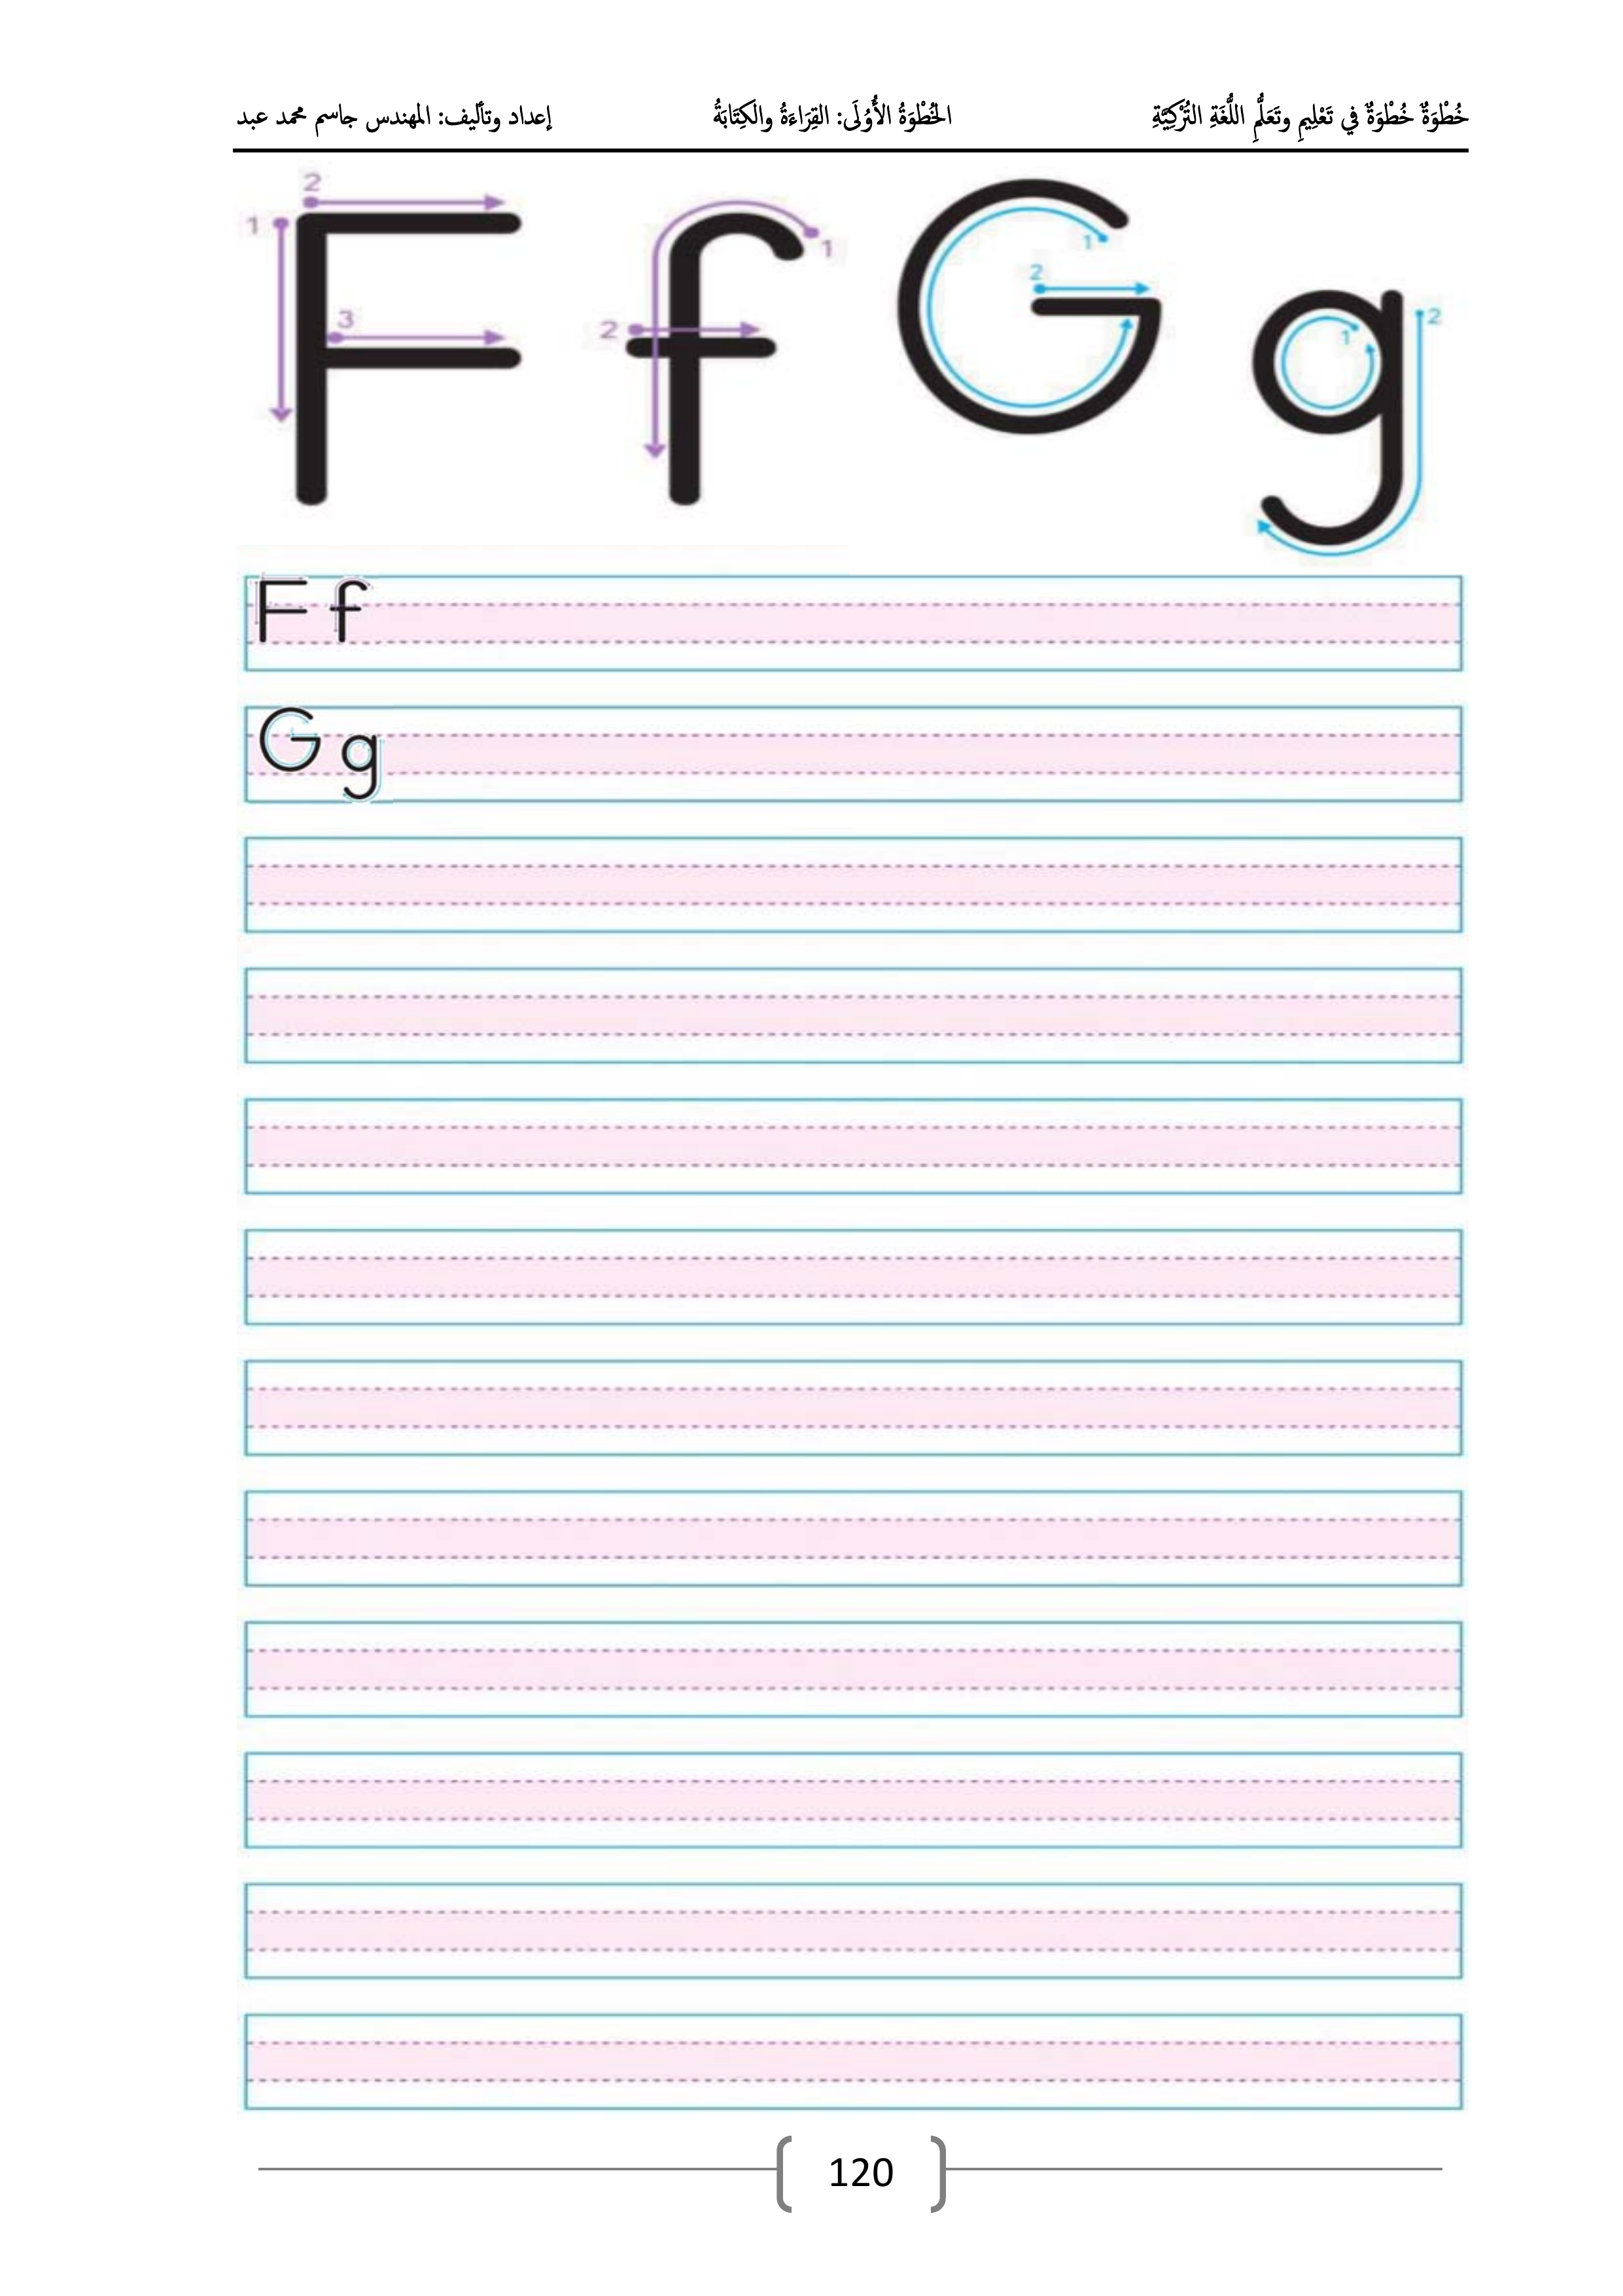 خُطْوَةٌ خُطْوَةٌ في تَعْلِيمِ وتَعَلُّمِ اللُّغَةِ التُّرْكِيَّةِ الخُطْوَةُ الأُوُلَى: القِرَاءَةُ والكِتَابَةُ إعداد وتأليف: المهندس جاسم محمد عبد
1 2 3 F 1 2 f 1 2 G 1 2 g
F f
G g
120